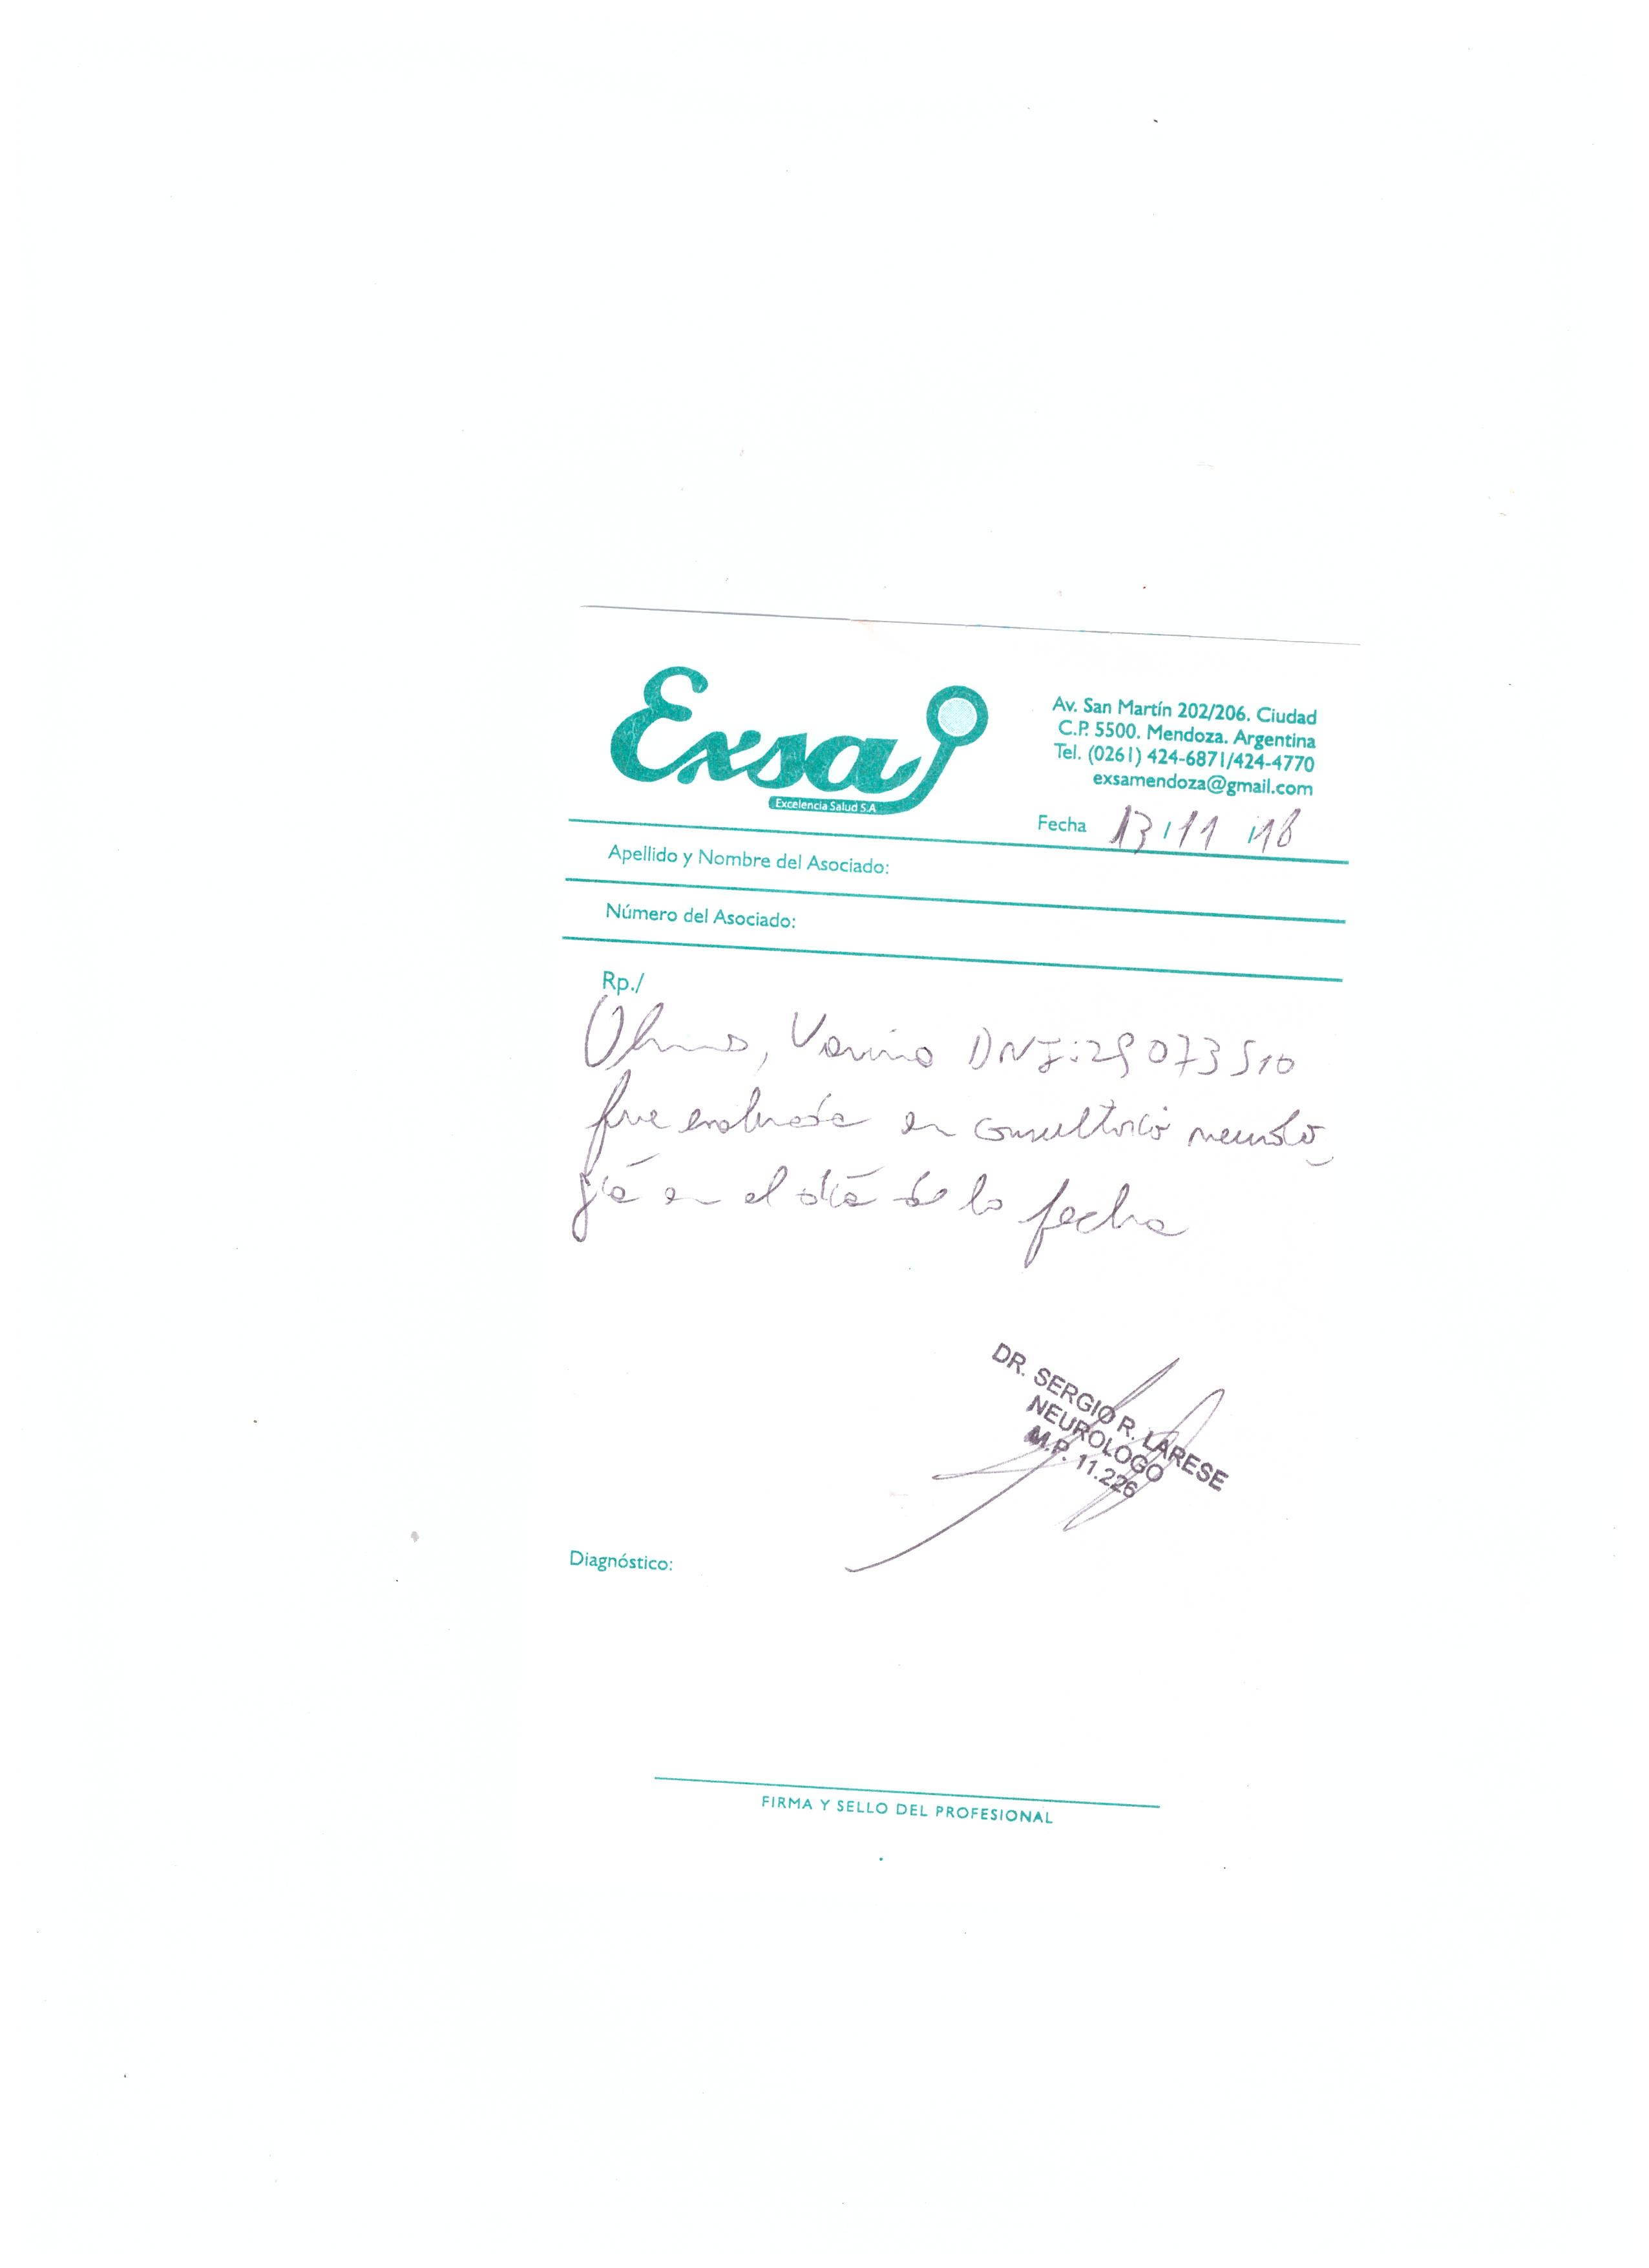 Exsa
Excelencia Salud S.A
Av. San Martín 202/206. Ciudad
C.P. 5500. Mendoza. Argentina
Tel. (0261) 424-6871/424-4770
exsamendoza@gmail.com
Fecha 13/11/18
Apellido y Nombre del Asociado:
Número del Asociado:
Rp./
Olmos, Vanina DNI: 29 073 510
fue evaluada en consultorio neurolo
gía en el día de la fecha
DR. SERGIO R. LARESE
NEUROLOGO
M.P. 11.226
Diagnóstico:
FIRMA Y SELLO DEL PROFESIONAL